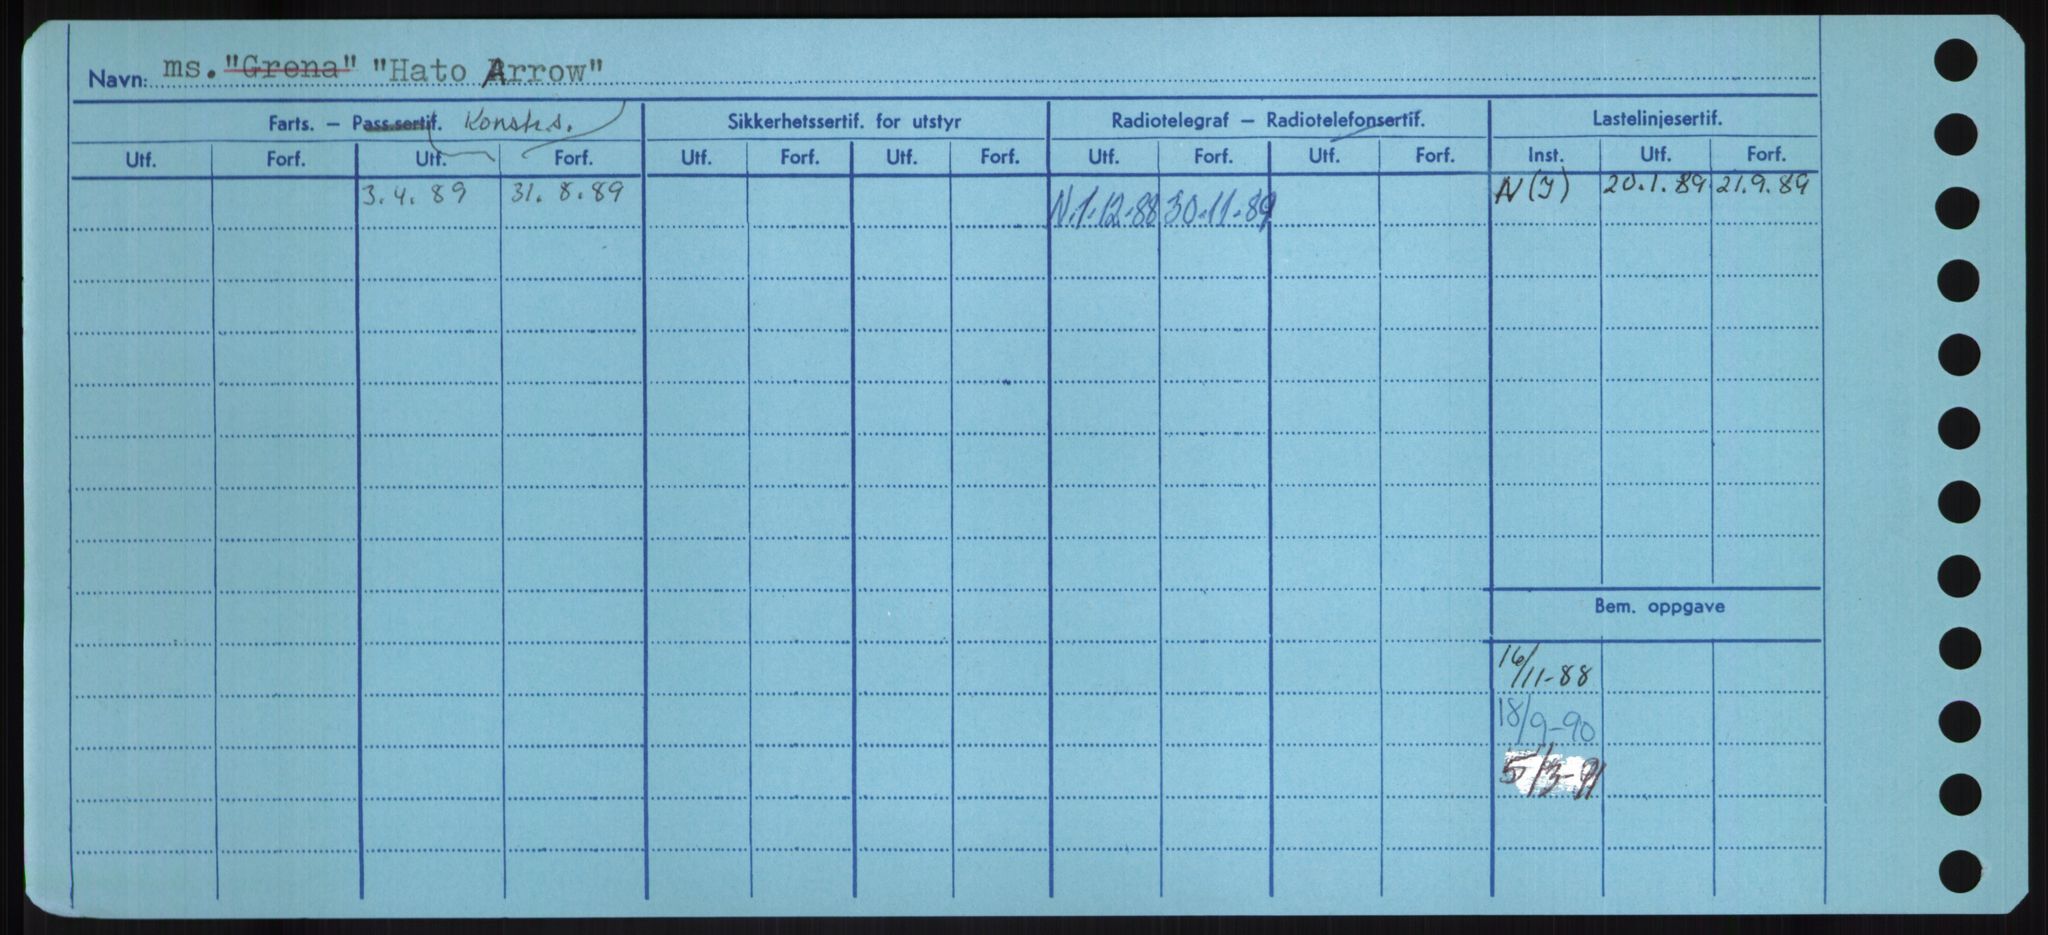 Navn: ms. "Grena" "Hato Arrow"
Farts. — Pass.sertif. Konstr.s. Sikkerhetssertif. for utstyr Radiotelegraf — Radiotelefonsertif. Lastelinjesertif.
Utf. Forf. Utf. Forf. Utf. Forf. Utf. Forf. Utf. Forf. Utf. Forf. Inst. Utf. Forf.
3.4.89 31.8.89 N.1-12-88 30-11-89 N(I) 20.1.89 21.9.89
Bem. oppgave
16/11-88
18/9-90
5/3-91